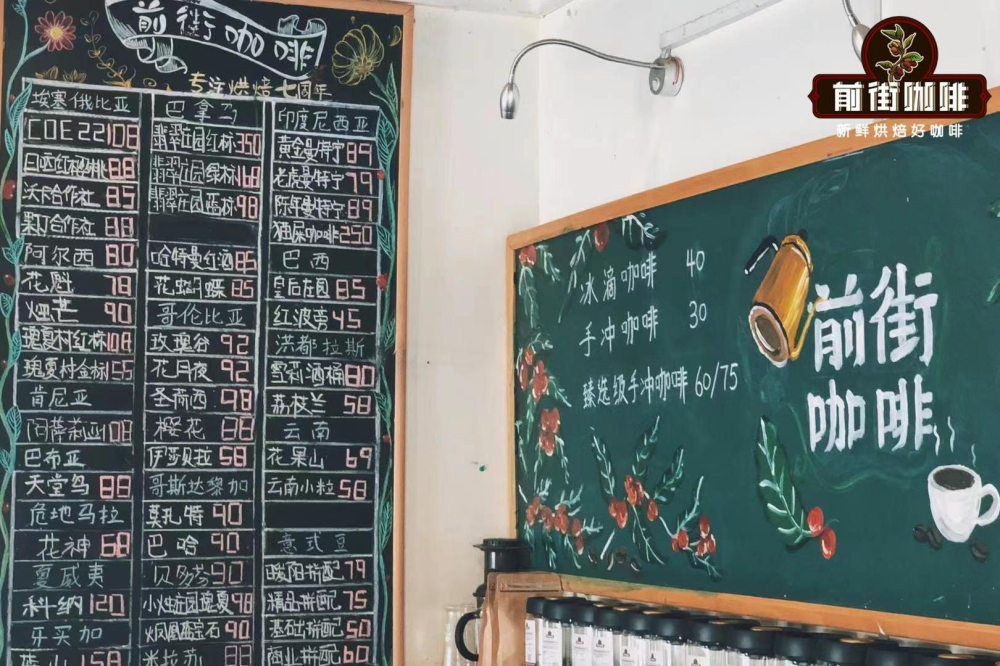 前街咖啡
专注烘焙七周年
埃塞俄比亚
COE22 108
日晒红樱桃 88
沃卡合作社 85
果丁丁合作社 88
阿尔西 80
花魁 78
烛芒 90
瑰夏村红标 108
瑰夏村金标 155
肯尼亚
阿萨莉亚 108
巴布亚
天堂鸟 88
危地马拉
花神 68
夏威夷
科纳 120
牙买加
158
巴拿马
翡翠庄园红标 350
翡翠庄园绿标 168
翡翠庄园蓝标 98
哈特曼红酒 85
花蝴蝶 85
哥伦比亚
玫瑰谷 92
花月夜 92
圣荷西 98
樱花 88
伊莎贝拉 58
哥斯达黎加
莫扎特 90
巴哈 90
贝多芬 90
小烛庄园瑰夏 98
火凤凰蓝宝石 90
米拉苏 88
印度尼西亚
黄金曼特宁 89
老虎曼特宁 79
陈年曼特宁 89
猫屎咖啡 250
巴西
皇后庄园 85
红波旁 45
洪都拉斯
雪莉酒桶 80
荔枝兰 58
云南
花果山 69
云南小粒 58
意式豆
暖阳拼配 79
精品拼配 75
基础拼配 50
商业拼配 60
冰滴咖啡 40
手冲咖啡 30
臻选级手冲咖啡 60/75
前街
咖啡
前街咖啡
新鲜烘焙好咖啡